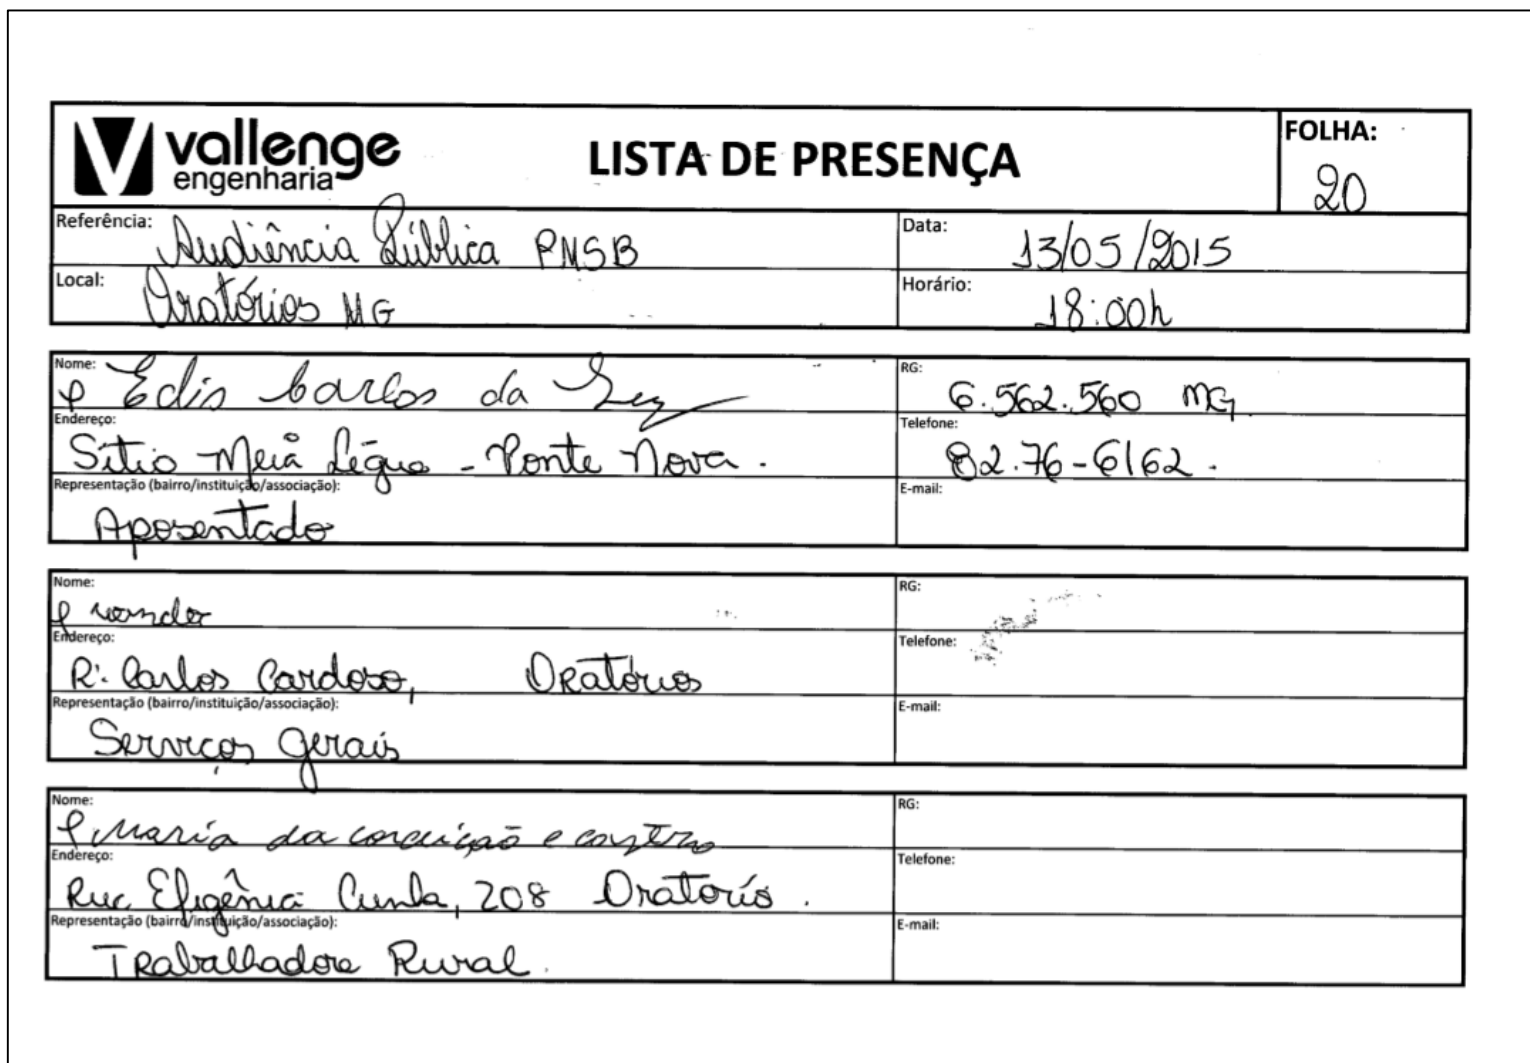 vallenge
engenharia
LISTA DE PRESENÇA
FOLHA:
20
Referência: Audiência Pública PMSB
Data: 13/05/2015
Local: Oratórios MG
Horário: 18:00h
Nome: Edis Carlos da
RG: 6.562.560 MG
Endereço: Sítio Meia Légua - Ponte Nova.
Telefone: 82.76-6162.
Representação (bairro/instituição/associação): Aposentado
E-mail:
Nome:
RG:
Endereço: R: Carlos Cardoso, Oratórios
Telefone:
Representação (bairro/instituição/associação): Serviços gerais
E-mail:
Nome: Maria da conceição e castro
RG:
Endereço: Rua Efigênia Cunha, 208 Oratorís.
Telefone:
Representação (bairro/instituição/associação): Trabalhadora Rural.
E-mail: